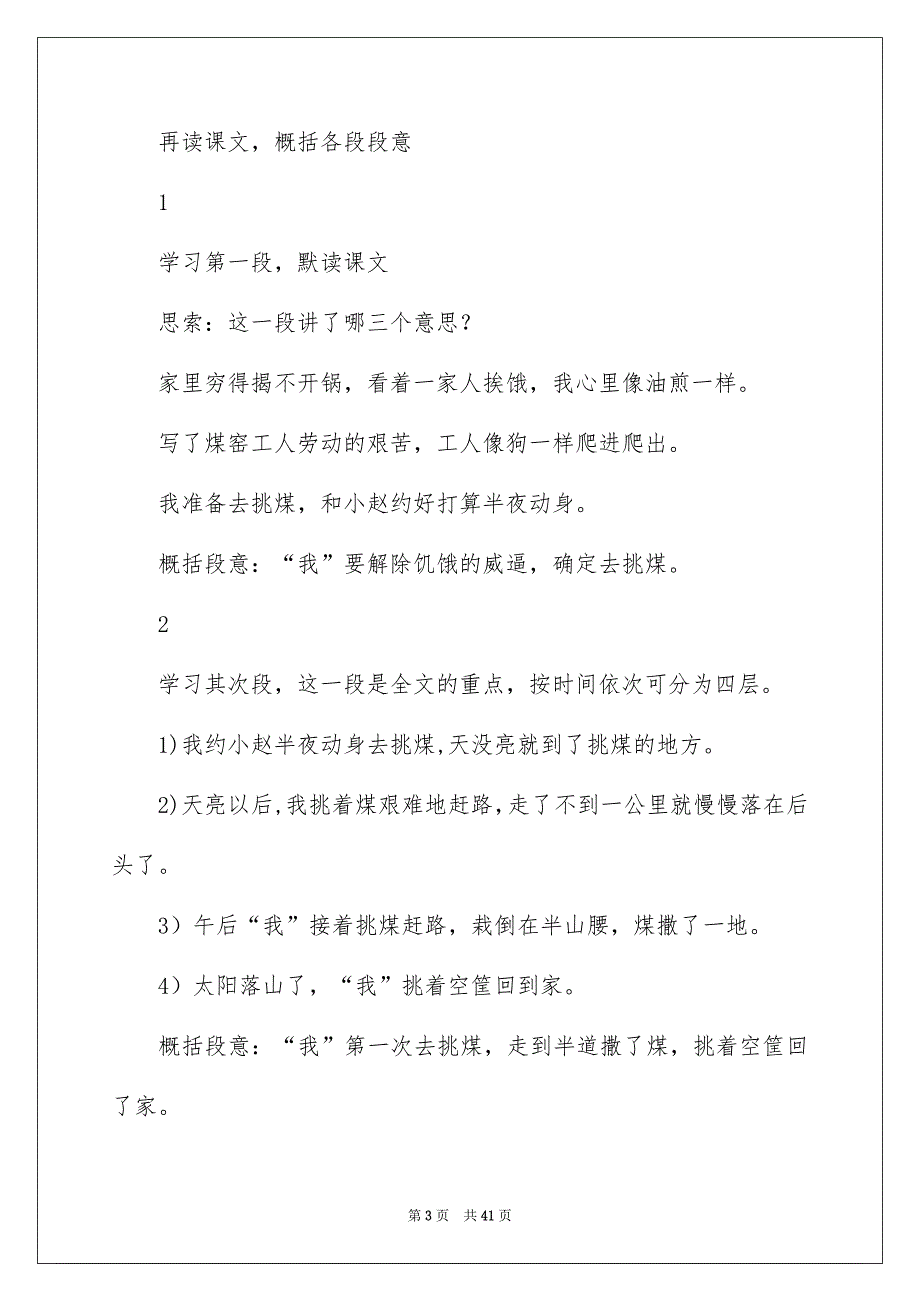 再读课文，概括各段段意
1
学习第一段，默读课文
思索：这一段讲了哪三个意思？
家里穷得揭不开锅，看着一家人挨饿，我心里像油煎一样。
写了煤窑工人劳动的艰苦，工人像狗一样爬进爬出。
我准备去挑煤，和小赵约好打算半夜动身。
概括段意：“我”要解除饥饿的威逼，确定去挑煤。
2
学习其次段，这一段是全文的重点，按时间依次可分为四层。
1)我约小赵半夜动身去挑煤,天没亮就到了挑煤的地方。
2)天亮以后,我挑着煤艰难地赶路,走了不到一公里就慢慢落在后
头了。
3）午后“我”接着挑煤赶路，栽倒在半山腰，煤撒了一地。
4）太阳落山了，“我”挑着空筐回到家。
概括段意：“我”第一次去挑煤，走到半道撒了煤，挑着空筐回
了家。
第 3 页 共 41 页